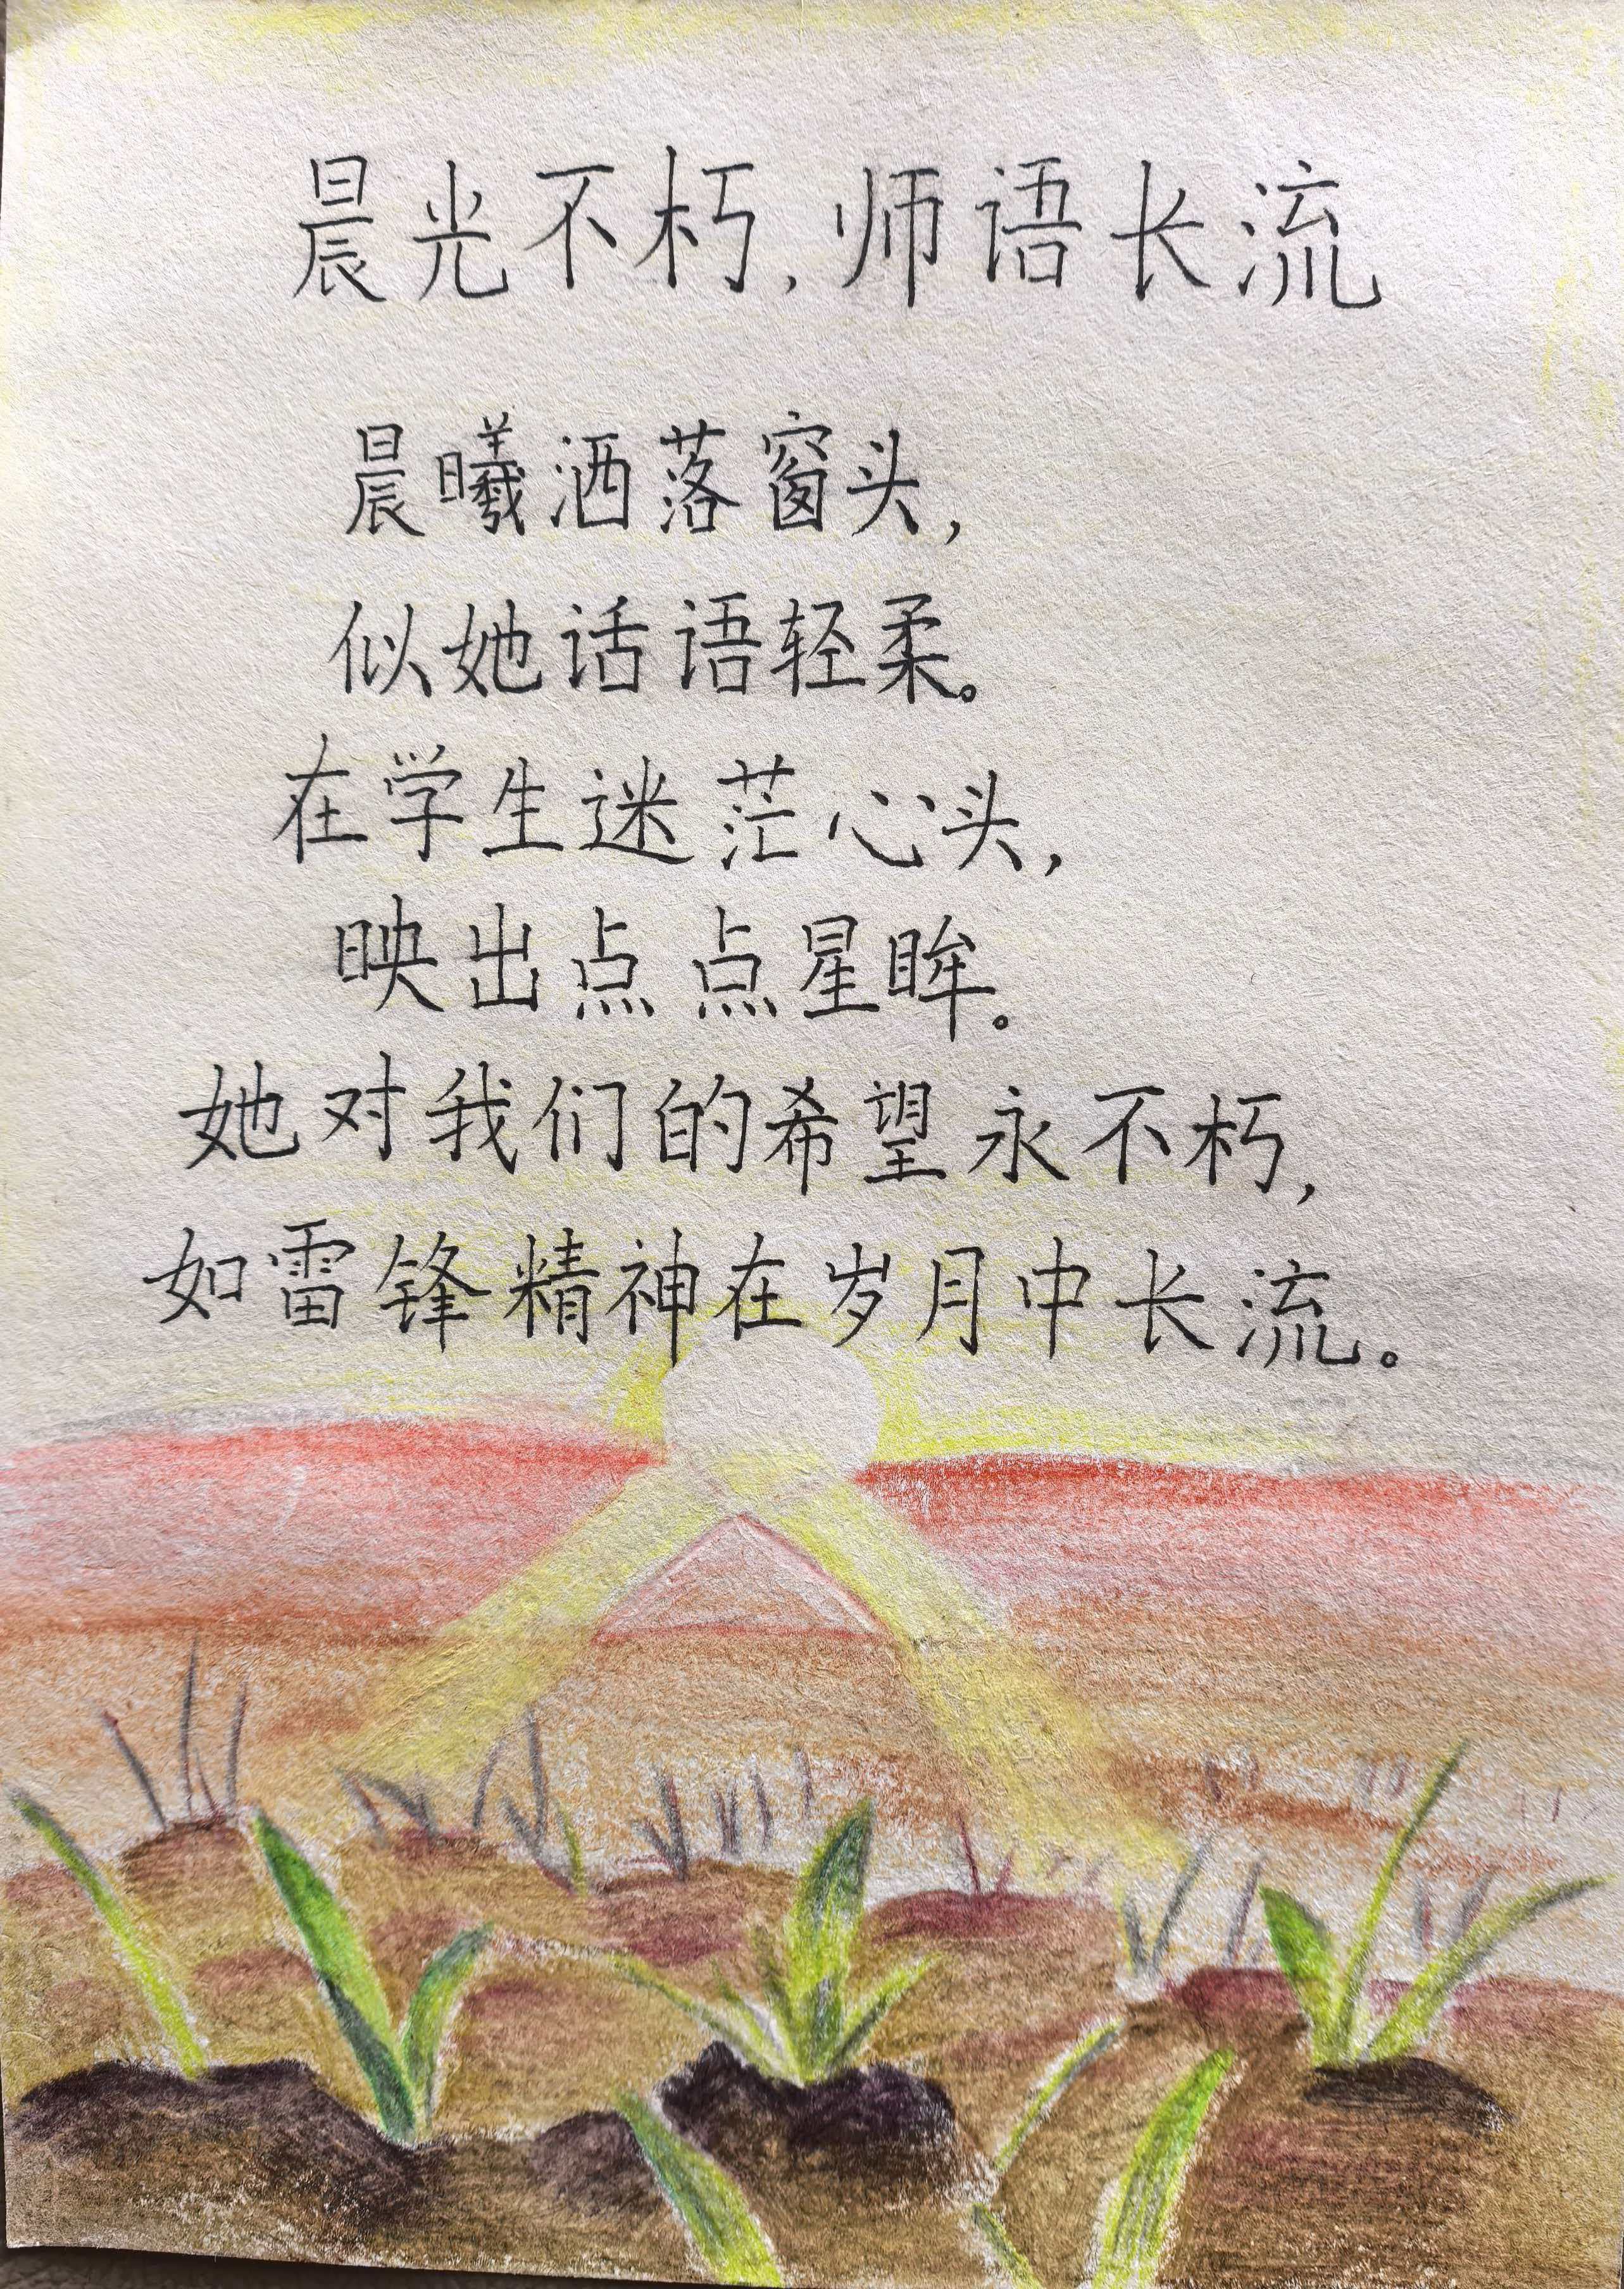 晨光不朽，师语长流
晨曦洒落窗头，
似她话语轻柔。
在学生迷茫心头，
映出点点星眸。
她对我们的希望永不朽，
如雷锋精神在岁月中长流。